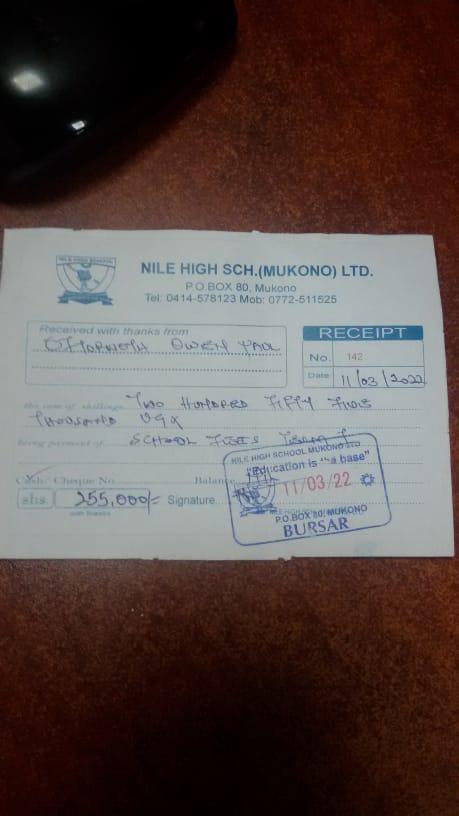 NILE HIGH SCHOOL
NILE HIGH SCH.(MUKONO) LTD.
P.O.BOX 80, Mukono
Tel: 0414-578123 Mob: 0772-511525
Received with thanks from
OWEN PAUL
RECEIPT
No. 142
Date 11/03/2022
the sum of shillings TWO HUNDRED FIFTY FIVE
THOUSAND UGX
being payment of SCHOOL FEES TERM I
Cash/ Cheque No. Balance
shs 255,000/= Signature
with thanks
NILE HIGH SCHOOL MUKONO LTD
"Education is a base"
11/03/22
P.O.BOX 80, MUKONO
BURSAR